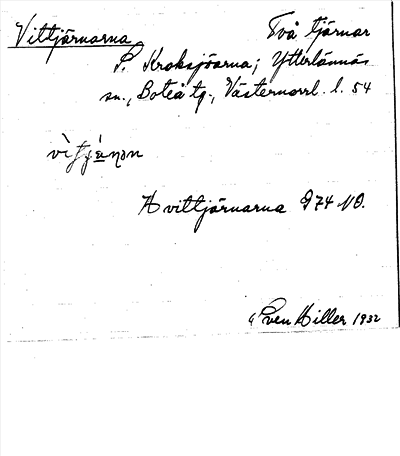 Vittjärnarna Två tjärnar
P. Kroksjöarna; Ytterlännäs
sn., Boteå tg., Västernorrl. l. 54
A vittjärnarna 974 NO.
Sven Hiller 1932